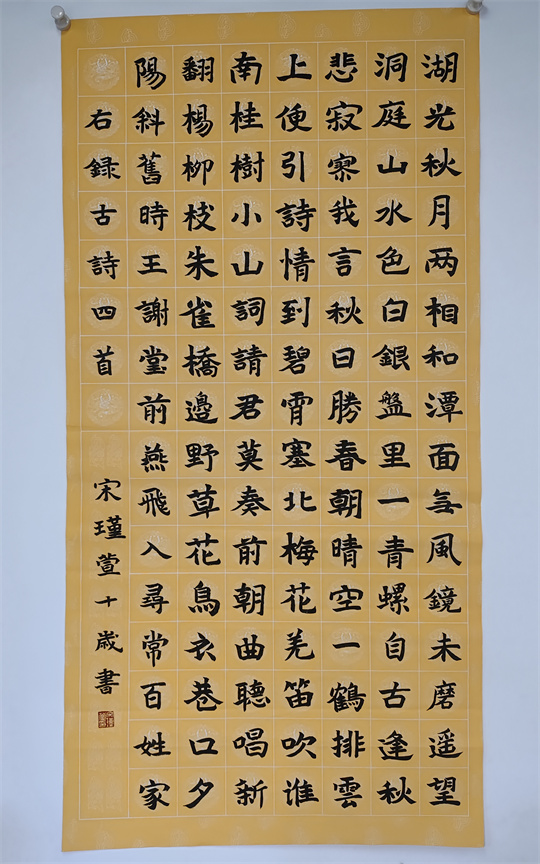 湖光秋月两相和潭面無風鏡未磨遥望
洞庭山水色白銀盤里一青螺自古逢秋
悲寂寥我言秋日勝春朝晴空一鶴排雲
上便引詩情到碧霄塞北梅花羌笛吹淮
南桂樹小山詞請君莫奏前朝曲聽唱新
翻楊柳枝朱雀橋邊野草花烏衣巷口夕
陽斜舊時王謝堂前燕飛入尋常百姓家
右録古詩四首
宋瑾萱十歲書